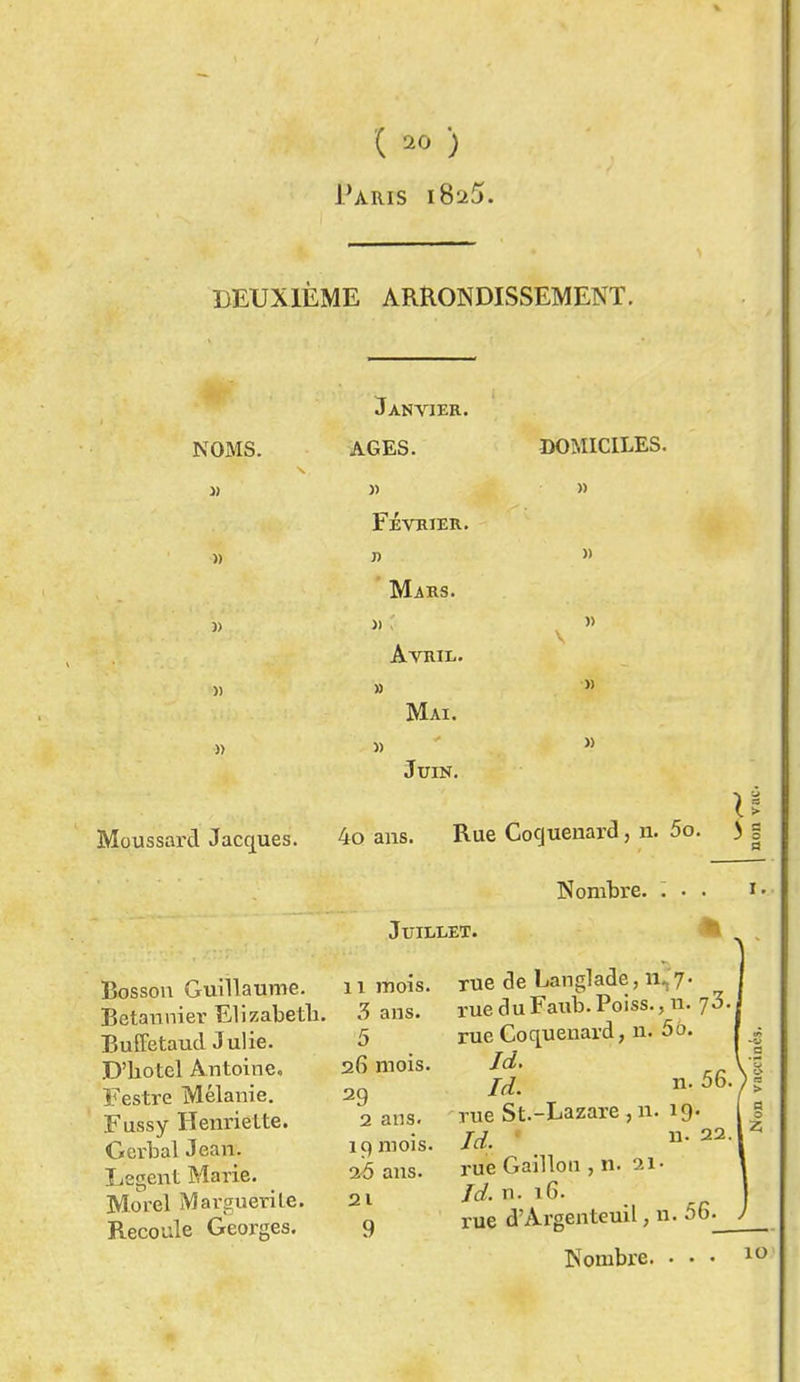 ( 20 )
PARIS 1825.
DEUXIÈME ARRONDISSEMENT.
JANVIER.
NOMS. AGES. DOMICILES.
» » »
FÉVRIER.
» » »
MARS.
» » »
AVRIL.
» » »
MAI.
» » »
JUIN.
Moussard Jacques. 40 ans. Rue Coquenard, n. 50. } non vac.
Nombre. . . . 1.
JUILLET.
Bosson Guillaume. 11 mois. rue de Langlade, n. 7.
Betannier Elizabeth. 3 ans. rue du Faub. Poiss., n. 73.
Buffetaud Julie. 5 rue Coquenard, n. 50.
D'hotel Antoine. 26 mois. Id.
Festre Mélanie. 29 Id. n. 56.
Fussy Henriette. 2 ans. rue St.-Lazare, n. 19.
Gerbal Jean. 19 mois. Id. n. 22.
Legent Marie. 25 ans. rue Gaillon, n. 21.
Morel Marguerite. 21 Id. n. 16.
Recoule Georges. 9 rue d'Argenteuil, n. 56.
Non vaccinés.
Nombre. . . . 10